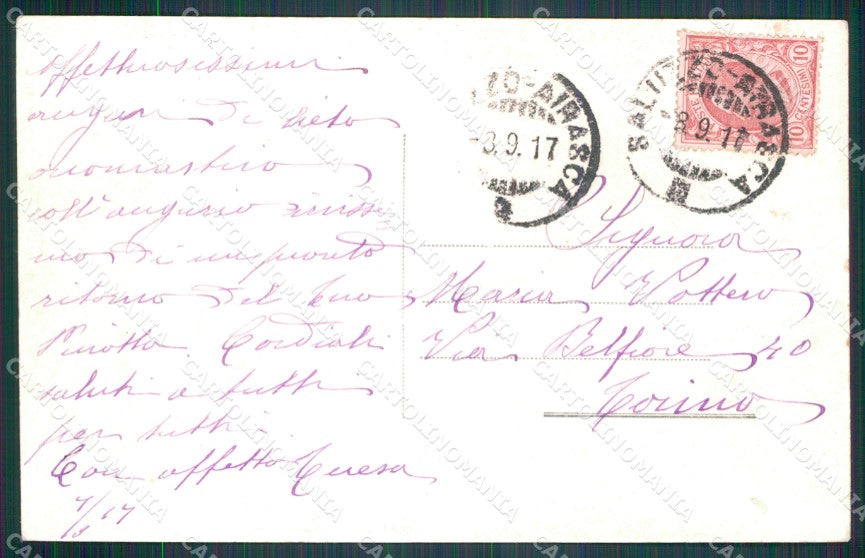 Affettuosissimi
auguri di lieto
onomastico
coll'augurio viviss
mo di un pronto
ritorno del tuo
Pinotto. Cordiali
saluti a tutti
per tutti.
Con affetto Teresa
7/9 17
SALUZZO-AIRASCA
-8.9.17
ZO-AIRASCA
-8.9.17
10
CENTESIMI
10
Signora
Maria Vottero
Via Belfiore 40
Torino
CARTOLINOMANIA